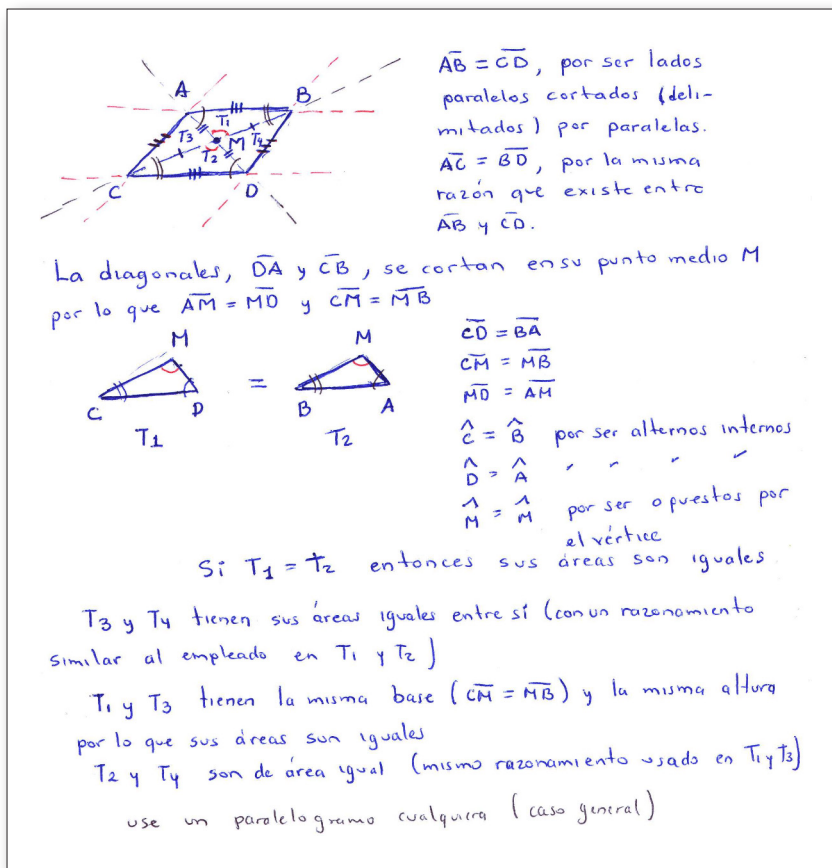 A
B
T1
T3
M
T4
T2
C
D
AB = CD, por ser lados
paralelos cortados (deli-
mitados) por paralelas.
AC = BD, por la misma
razón que existe entre
AB y CD.
La diagonales, DA y CB, se cortan en su punto medio M
por lo que AM = MD y CM = MB
M
C
D
T1
=
M
B
A
T2
CD = BA
CM = MB
MD = AM
Ĉ = B̂ por ser alternos internos
D̂ = Â " " " "
M̂ = M̂ por ser opuestos por
el vértice
Si T1 = T2 entonces sus áreas son iguales
T3 y T4 tienen sus áreas iguales entre sí (con un razonamiento
similar al empleado en T1 y T2)
T1 y T3 tienen la misma base (CM = MB) y la misma altura
por lo que sus áreas son iguales
T2 y T4 son de área igual (mismo razonamiento usado en T1 y T3)
use un paralelogramo cualquiera (caso general)